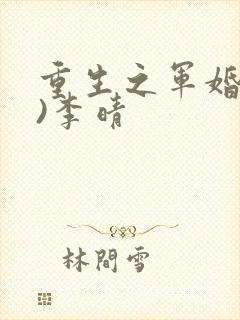 重生之軍婚
)李晴
林間雪